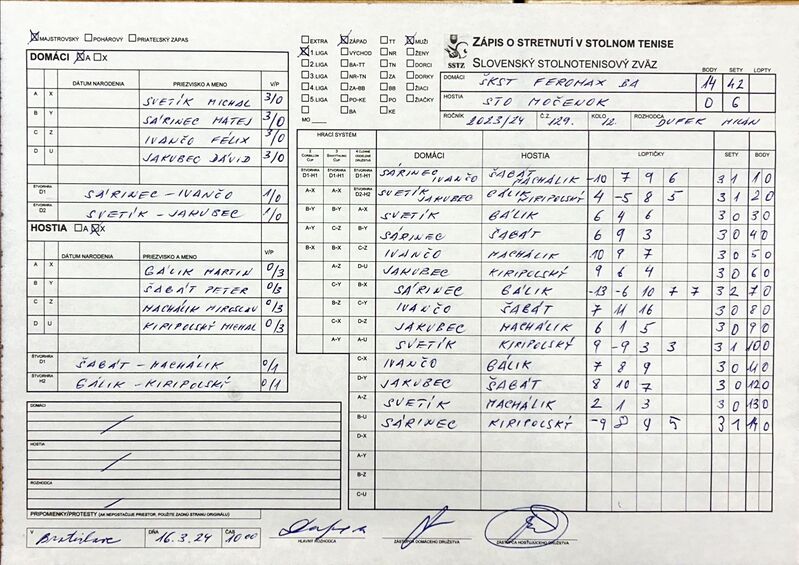 ☒ MAJSTROVSKÝ ☐ POHÁROVÝ ☐ PRIATEĽSKÝ ZÁPAS
DOMÁCI ☒ A ☐ X
DÁTUM NARODENIA PRIEZVISKO A MENO V/P
A X SVETÍK MICHAL 3/0
B Y SÁRINEC MATEJ 3/0
C Z IVANČO FÉLIX 3/0
D U JAKUBEC DÁVID 3/0
ŠTVORHRA D1 SÁRINEC - IVANČO 1/0
ŠTVORHRA D2 SVETÍK - JAKUBEC 1/0
HOSTIA ☐ A ☒ X
DÁTUM NARODENIA PRIEZVISKO A MENO V/P
A X GÁLIK MARTIN 0/3
B Y ŠABÁT PETER 0/3
C Z MACHÁLIK MIROSLAV 0/3
D U KIRIPOLSKÝ MICHAL 0/3
ŠTVORHRA D1 ŠABÁT - MACHÁLIK 0/1
ŠTVORHRA H2 GÁLIK - KIRIPOLSKÝ 0/1
DOMÁCI
HOSTIA
ROZHODCA
PRIPOMIENKY/PROTESTY (AK NEPOSTAČUJE PRIESTOR, POUŽITE ZADNÚ STRANU ORIGINÁLU)
V Bratislave DŇA 16.3.24 ČAS 10:00
☐ EXTRA ☒ ZÁPAD ☐ TT ☒ MUŽI
☒ 1 LIGA ☐ VÝCHOD ☐ NR ☐ ŽENY
☐ 2 LIGA ☐ BA-TT ☐ TN ☐ DORCI
☐ 3 LIGA ☐ NR-TN ☐ ZA ☐ DORKY
☐ 4 LIGA ☐ ZA-BB ☐ BB ☐ ŽIACI
☐ 5 LIGA ☐ PO-KE ☐ PO ☐ ŽIAČKY
MO ☐ BA ☐ KE
SSTZ
ZÁPIS O STRETNUTÍ V STOLNOM TENISE
SLOVENSKÝ STOLNOTENISOVÝ ZVÄZ
BODY SETY LOPTY
DOMÁCI ŠKST FEROMAX BA 14 42
HOSTIA STO MOČENOK 0 6
ROČNÍK 2023/24 Č.Z. 129. KOLO 12. ROZHODCA DUFEK MILAN
HRACÍ SYSTÉM DOMÁCI HOSTIA LOPTIČKY SETY BODY
ŠTVORHRA D1-H1 ŠTVORHRA D1-H1 ŠTVORHRA D1-H1 SÁRINEC IVANČO ŠABÁT MACHÁLIK -10 7 9 6 3 1 1 0
A-X A-X ŠTVORHRA D2-H2 SVETÍK JAKUBEC GÁLIK KIRIPOLSKÝ 4 -5 8 5 3 1 2 0
B-Y B-Y A-X SVETÍK GÁLIK 6 4 6 3 0 3 0
SÁRINEC ŠABÁT 6 9 3 3 0 4 0
IVANČO MACHÁLIK 10 9 7 3 0 5 0
A-Z D-U JAKUBEC KIRIPOLSKÝ 9 6 4 3 0 6 0
C-Y B-X SÁRINEC GÁLIK -13 -6 10 7 7 3 2 7 0
B-Z C-Y IVANČO ŠABÁT 7 11 16 3 0 8 0
C-X D-Z JAKUBEC MACHÁLIK 6 1 5 3 0 9 0
A-Y A-U SVETÍK KIRIPOLSKÝ 9 -9 3 3 3 1 10 0
C-X IVANČO GÁLIK 7 8 9 3 0 11 0
D-Y JAKUBEC ŠABÁT 8 10 7 3 0 12 0
A-Z SVETÍK MACHÁLIK 2 1 3 3 0 13 0
B-U SÁRINEC KIRIPOLSKÝ -9 8 4 5 3 1 14 0
D-X
A-Y
B-Z
C-U
HLAVNÝ ROZHODCA ZÁSTUPCA DOMÁCEHO DRUŽSTVA ZÁSTUPCA HOSŤUJÚCEHO DRUŽSTVA